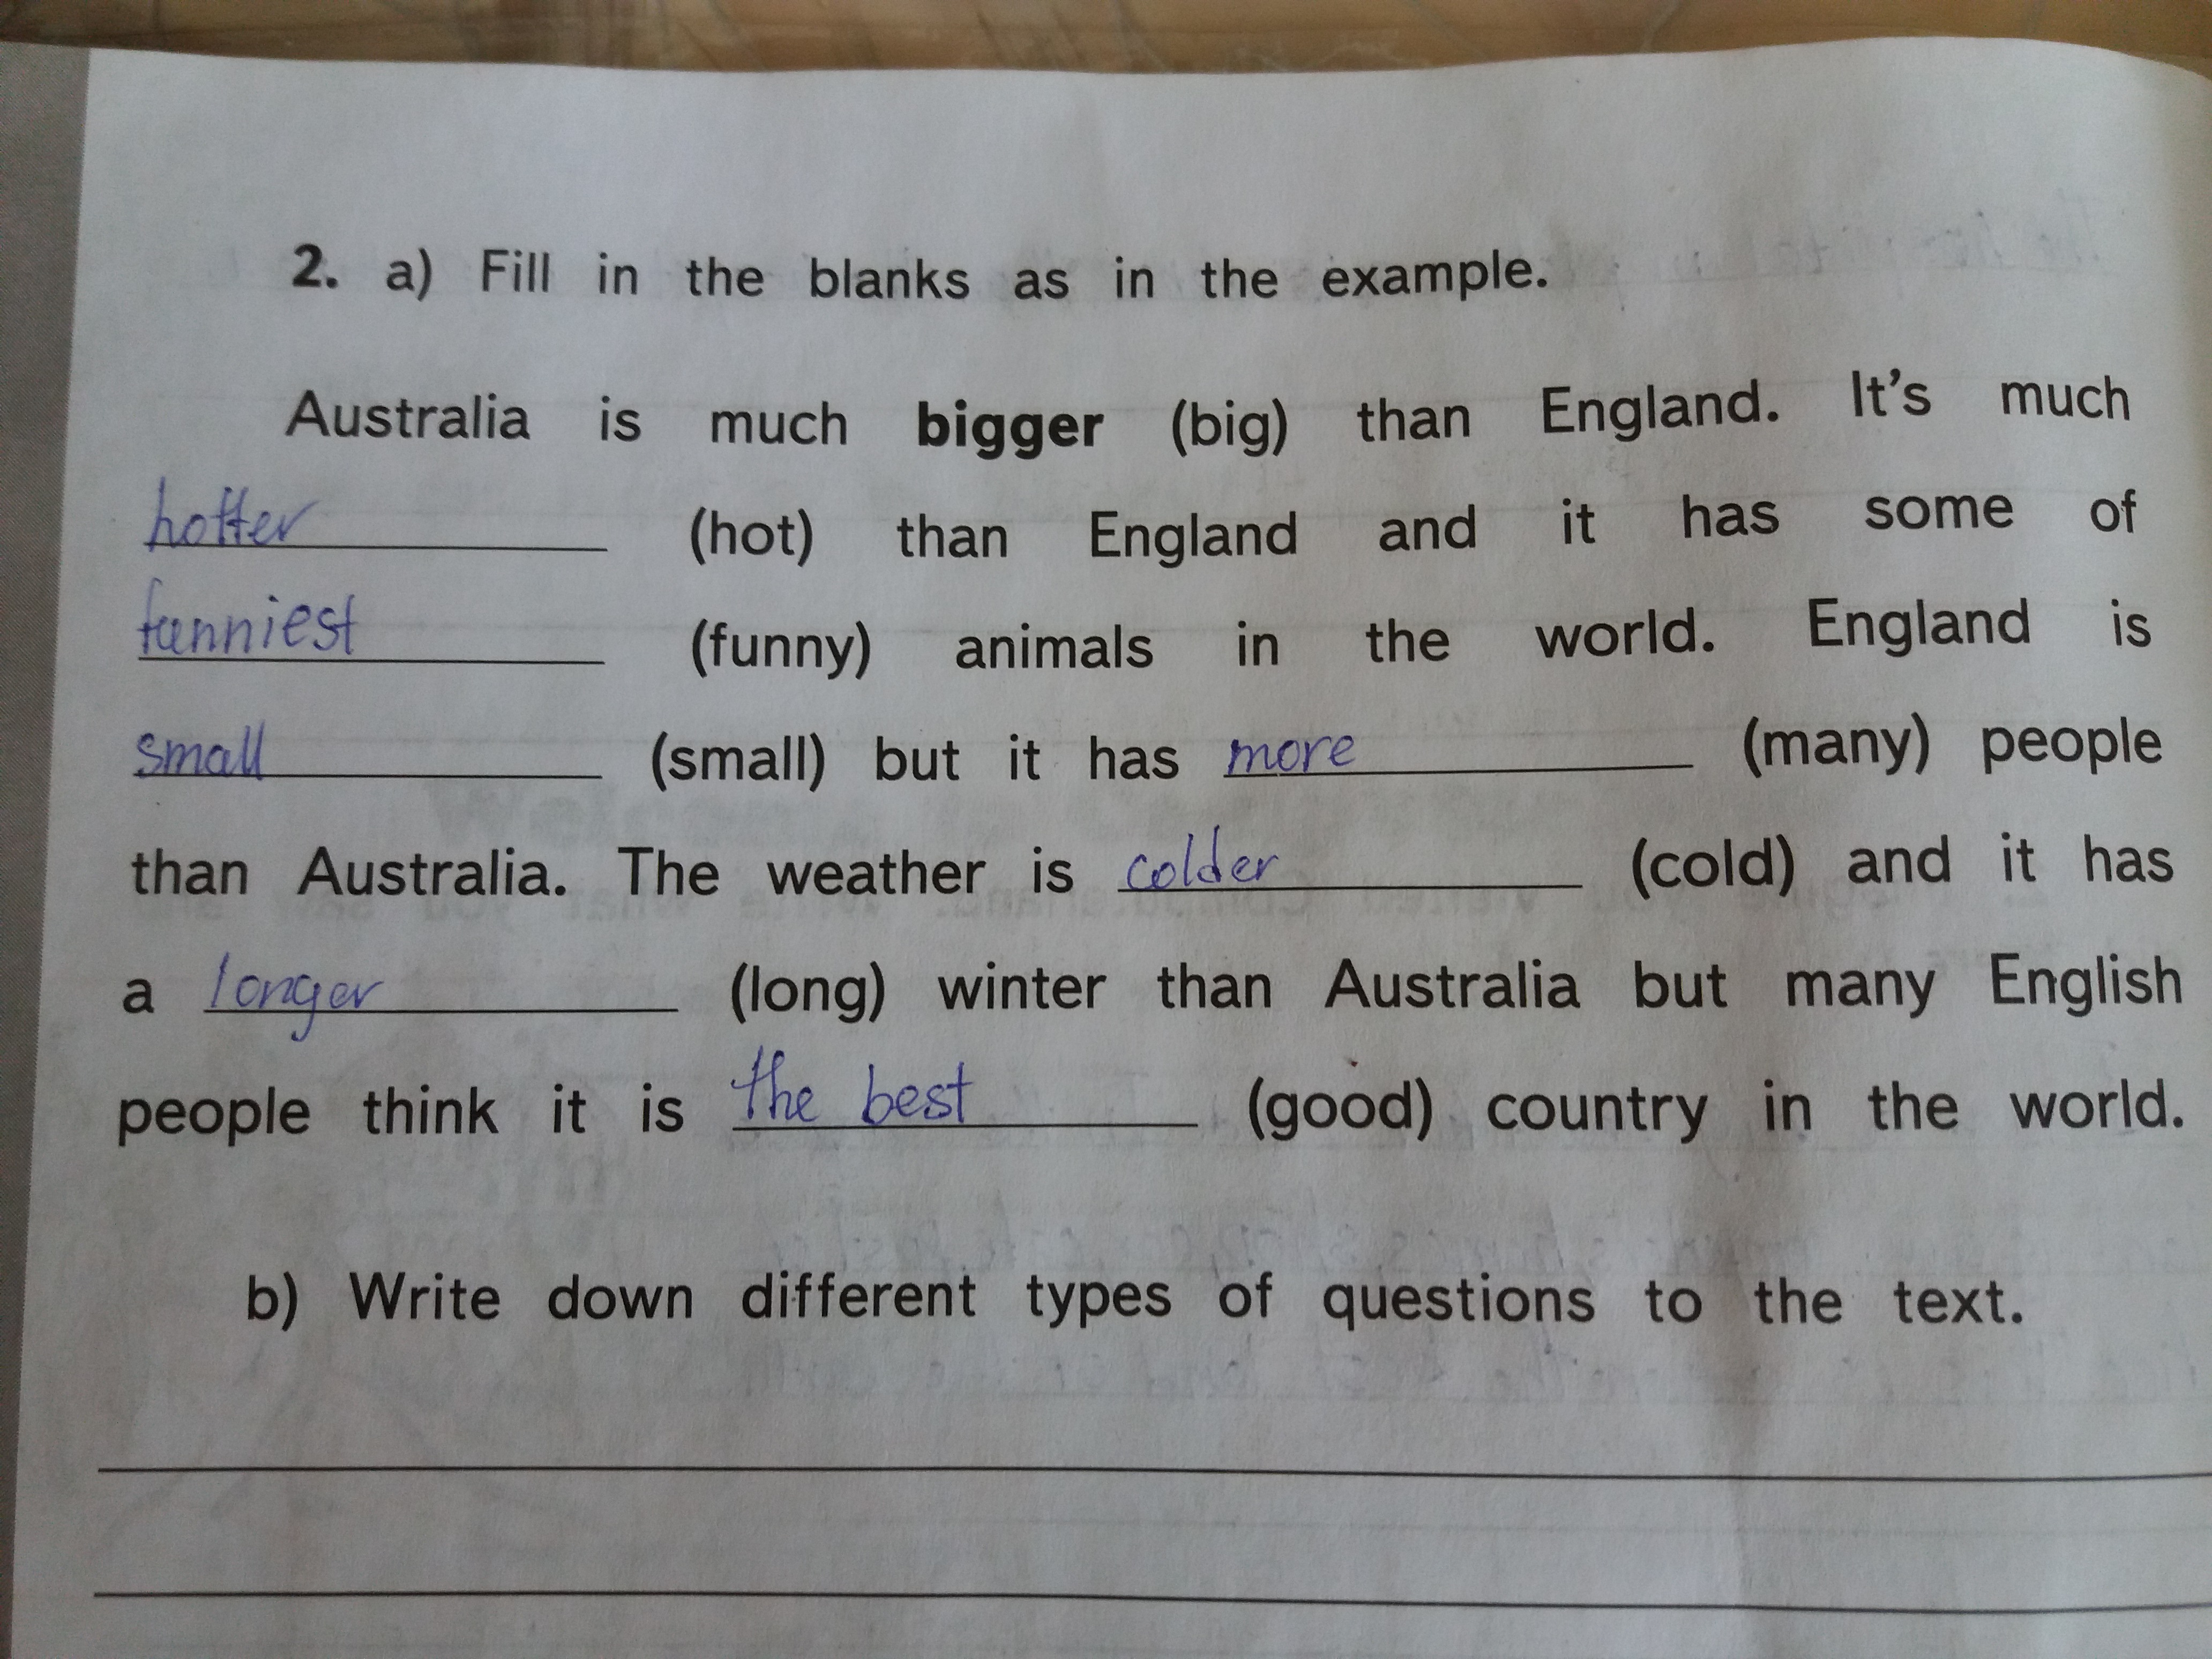 2. a) Fill in the blanks as in the example.
Australia is much bigger (big) than England. It's much
hotter (hot) than England and it has some of
funniest (funny) animals in the world. England is
small (small) but it has more (many) people
than Australia. The weather is colder (cold) and it has
a longer (long) winter than Australia but many English
people think it is the best (good) country in the world.
b) Write down different types of questions to the text.